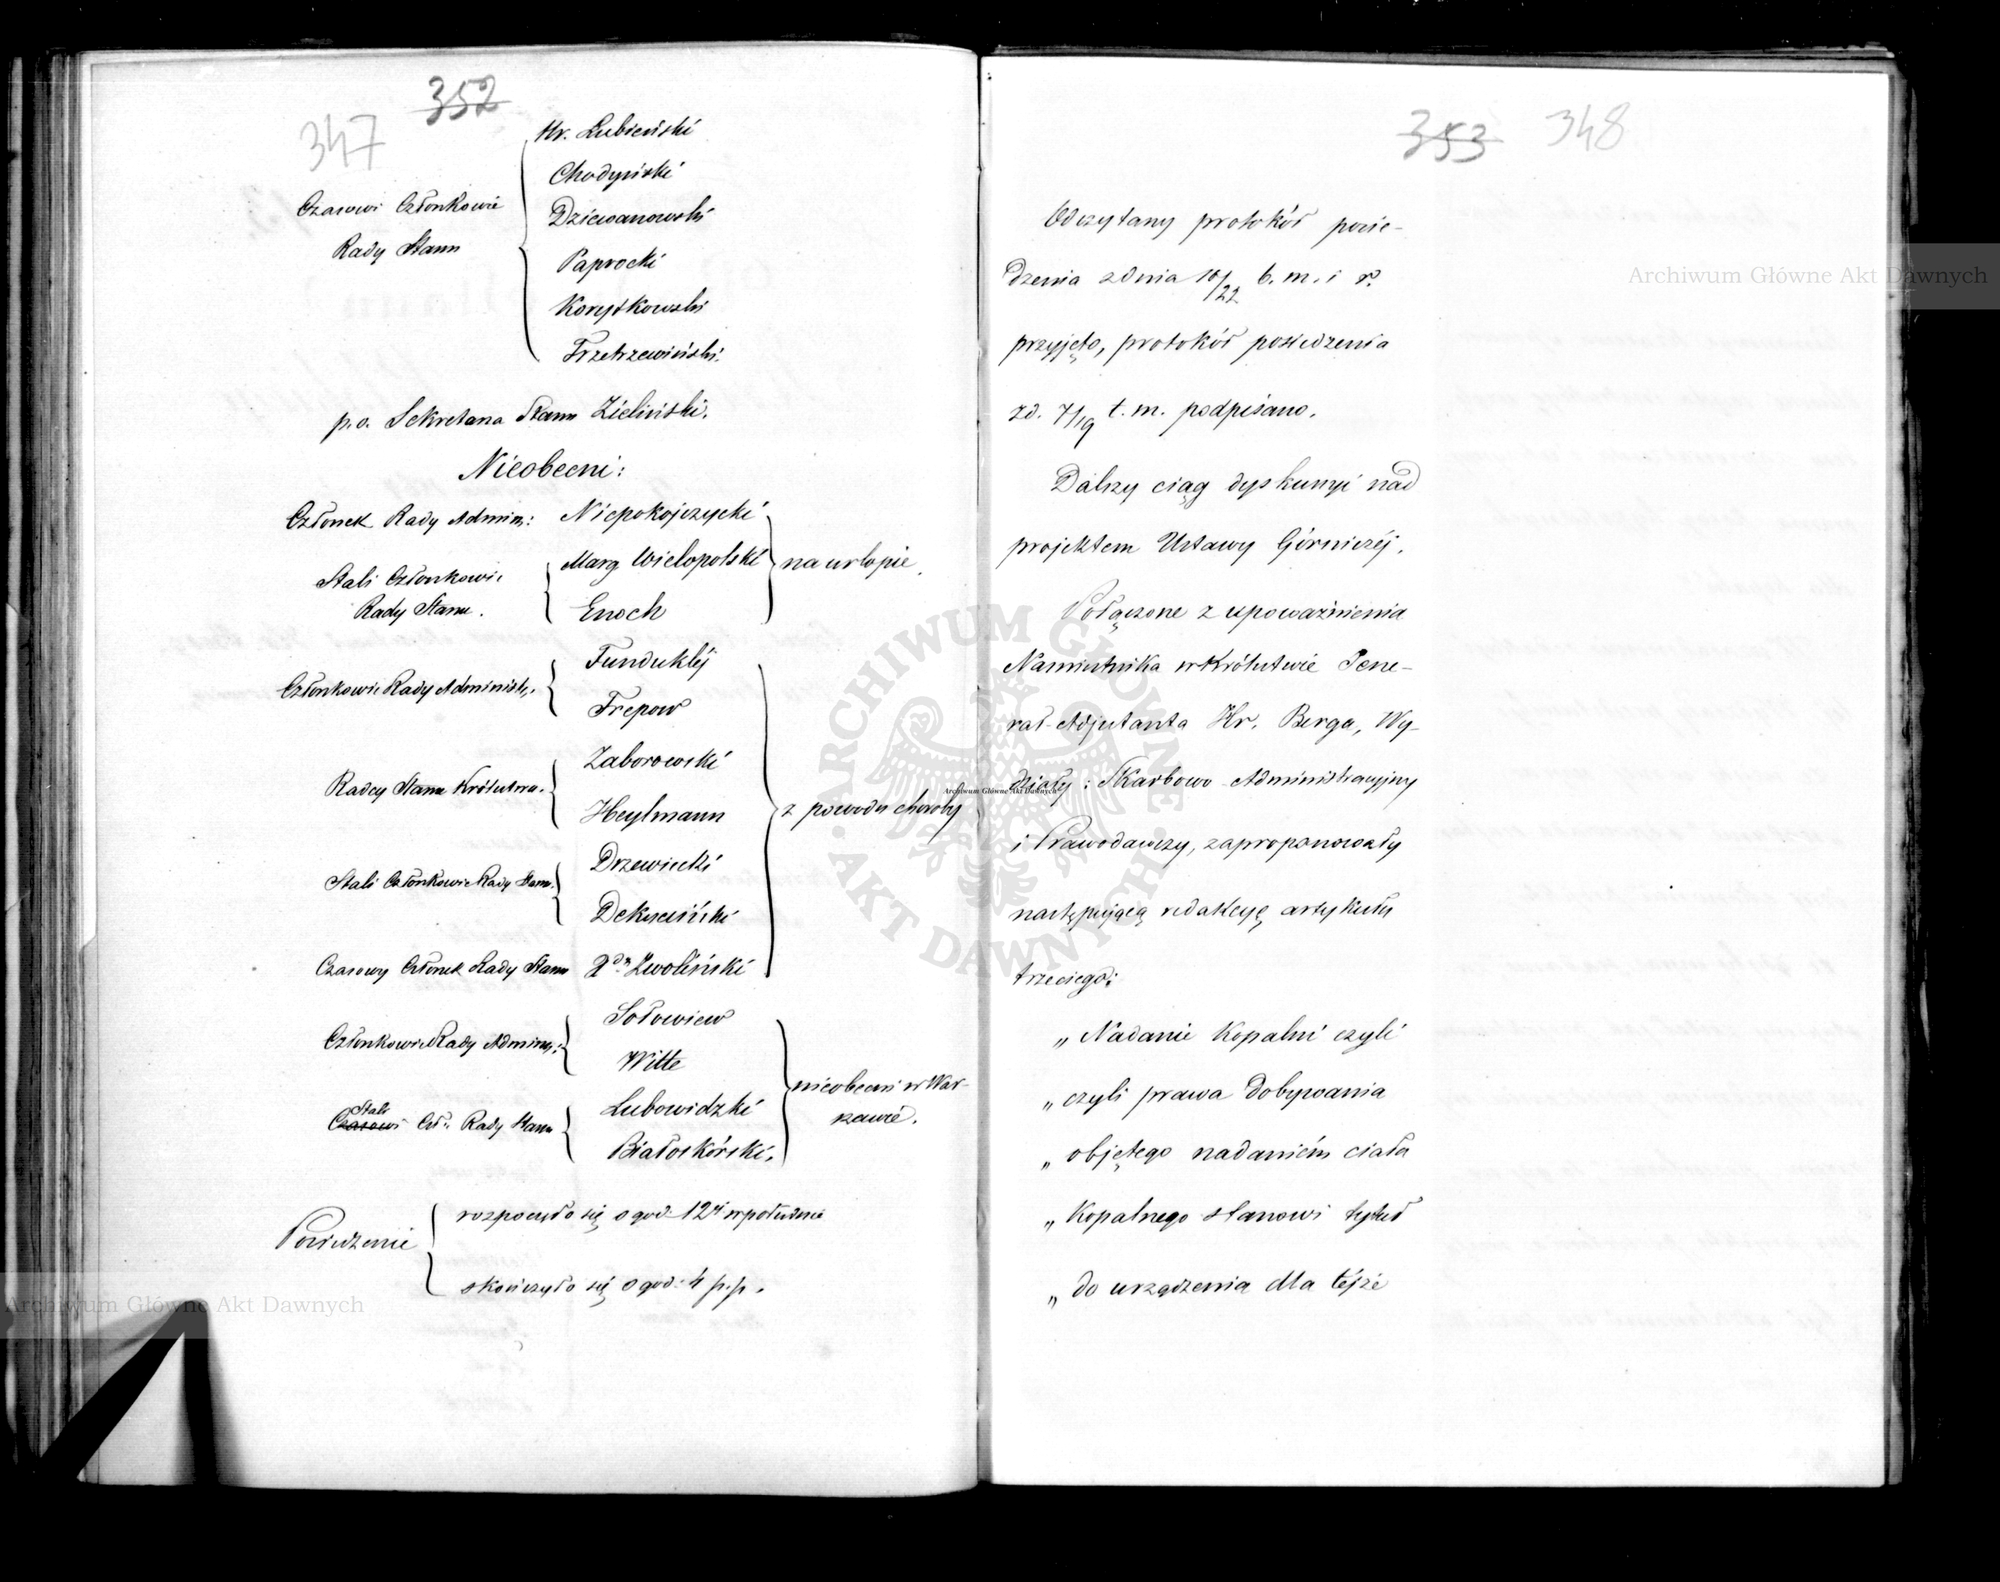 352
347
Hr. Łubieński
Chodyński
Czasowi Członkowie
Dziewanowski
Rady Stanu
Paprocki
Korytkowski
Trzetrzewiński.
p.o. Sekretarza Stanu Zieliński.
Nieobecni:
Członek Rady Admin: Niepokojczycki
Marg. Wielopolski
na urlopie.
Stali Członkowie
Rady Stanu.
Enoch
Funduklej
Członkowie Rady Administ:
Trepow
Zaborowski
Radcy Stanu Królestwa.
Heylmann
z powodu choroby
Drzewiecki
Stali Członkowie Rady Stanu.
Dekuciński
Czasowy Członek Rady Stanu Xdz Zwoliński
Sołowiew
Członkowie Rady Admin:
Witte
nieobecni w War-
szawie.
Lubowidzki
Stali
Czasowi Czł: Rady Stanu
Białoskórski.
rozpoczęło się o god. 12ej w południe
Posiedzenie
skończyło się o god: 4 p.p.
353 348
Odczytany protokół posie-
dzenia z dnia 10/22 b. m. i r.
przyjęto, protokół posiedzenia
z d. 7/19 t. m. podpisano.
Dalszy ciąg dyskusyi nad
projektem Ustawy Górniczéj.
Połączone z upoważnienia
Namiestnika w Królestwie Jene-
rał-Adjutanta Hr. Berga, Wy-
działy: Skarbowo-Administracyjny
i Prawodawczy, zaproponowały
następującą redakcyę artykułu
trzeciego:
„ Nadanie Kopalni czyli
„ czyli prawa dobywania
„ objętego nadaniém ciała
„ Kopalnego stanowi tytuł
„ do urządzenia dla téjże
Archiwum Główne Akt Dawnych
Archiwum Główne Akt Dawnych
Archiwum Główne Akt Dawnych
ARCHIWUM GŁÓWNE AKT DAWNYCH